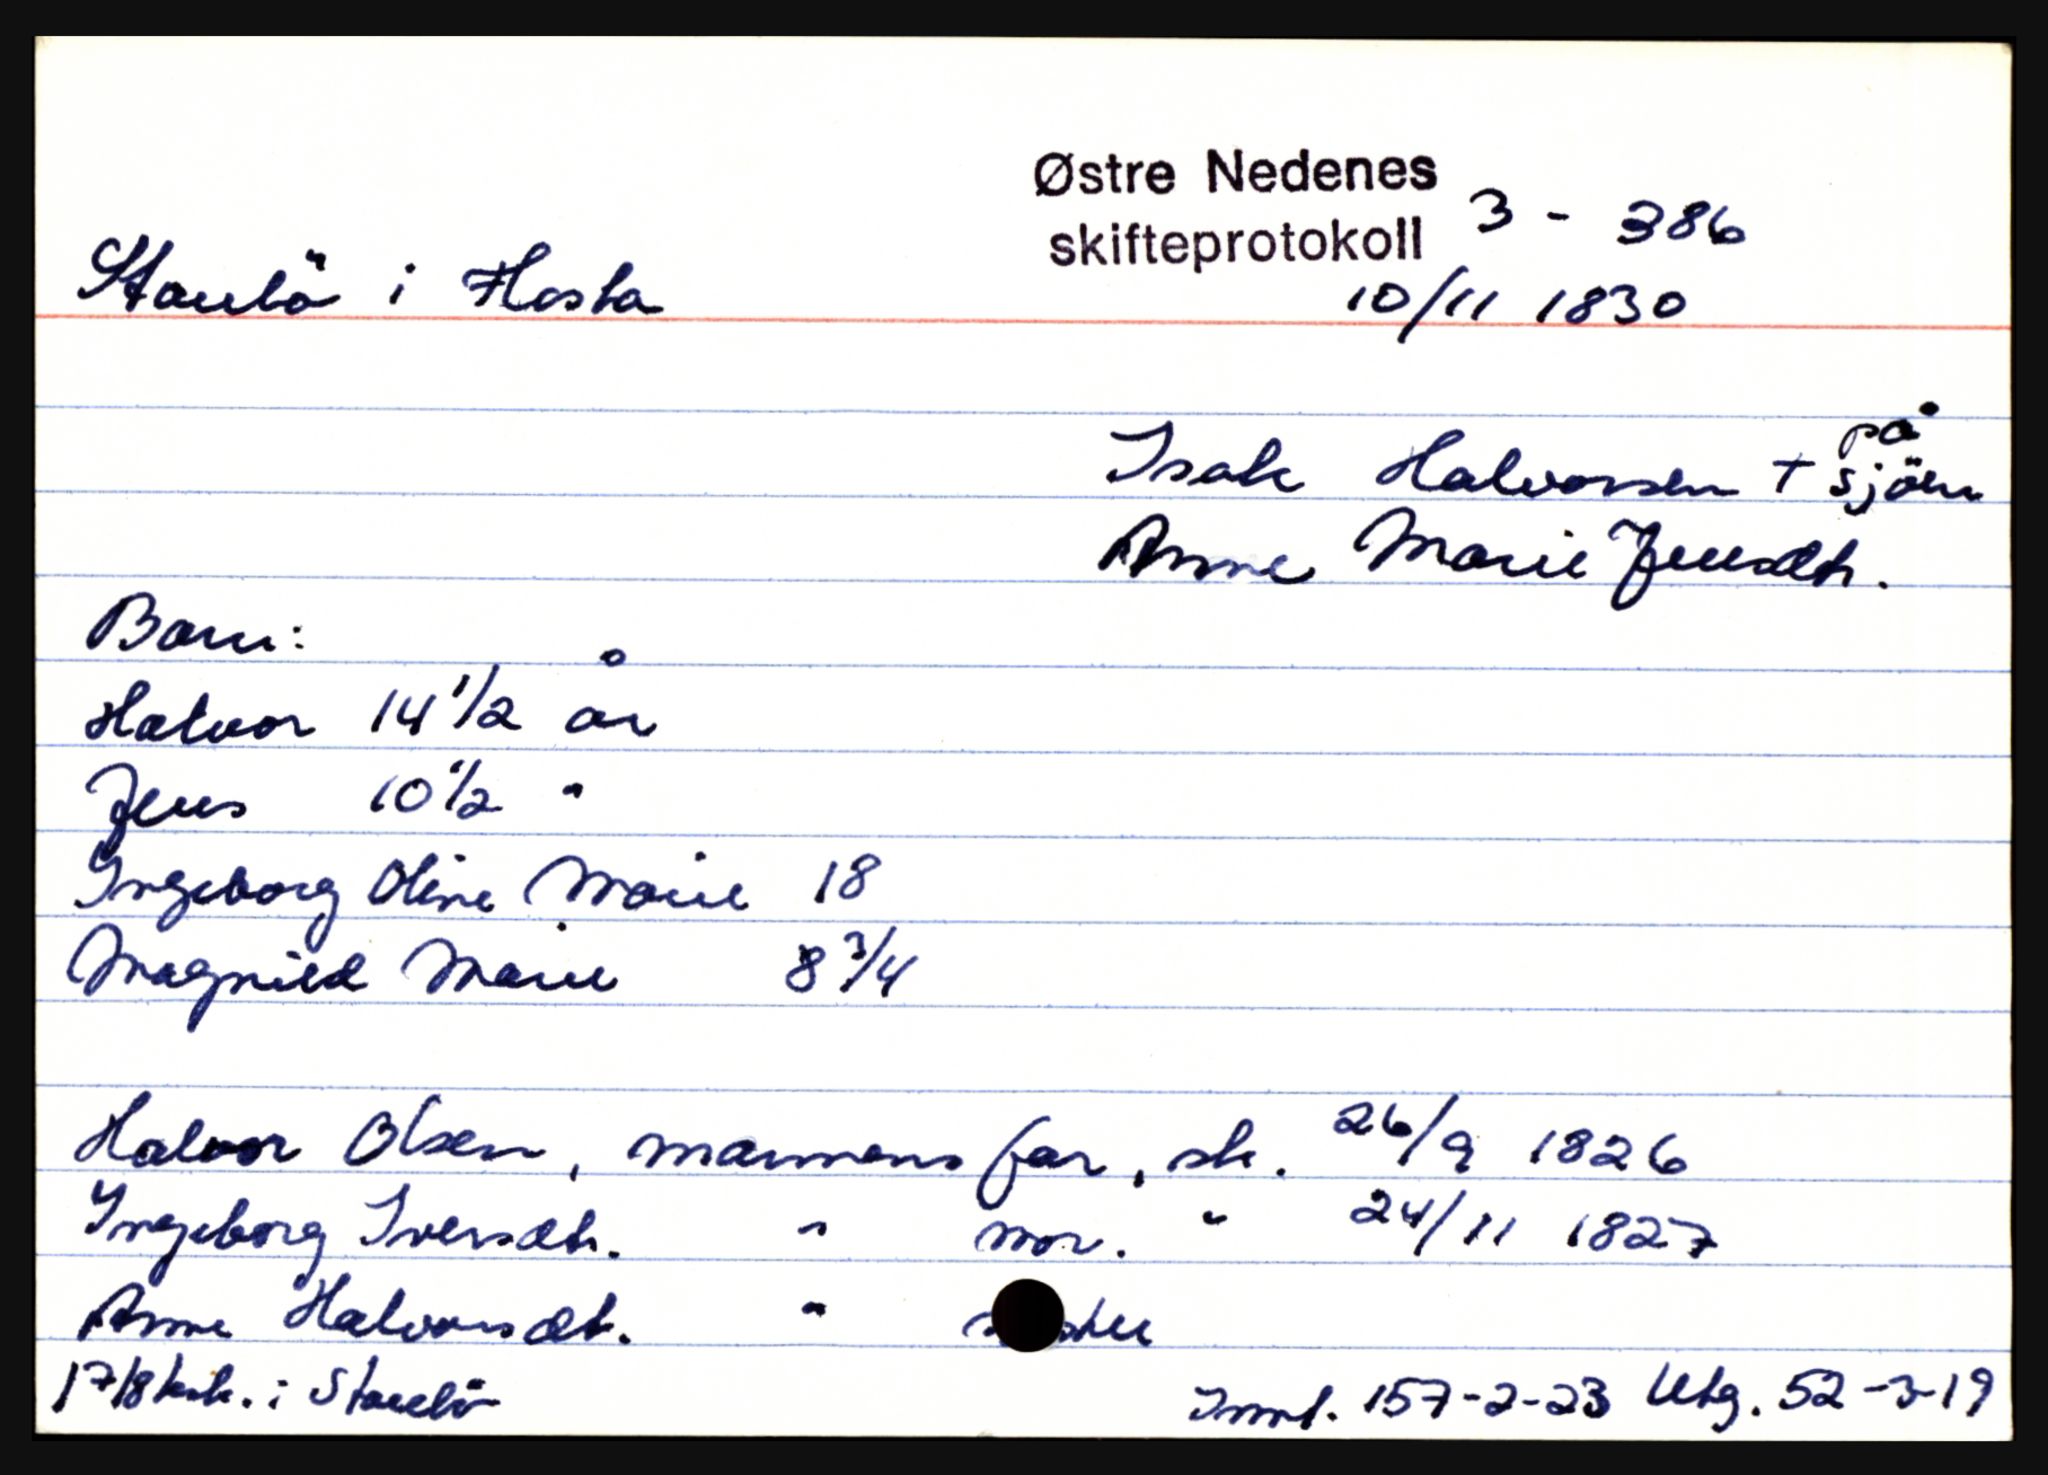 Østre Nedenes
skifteprotokoll 3 - 386
Staubö i Flosta 10/11 1830
på
Isak Halvorsen + sjöen
Anne Marie Jensdtr.
Barn:
Halvor 14 1/2 år
Jens 10 1/2 "
Ingeborg Oline Marie 18
Magnild Marie 8 3/4
Halvor Olsen, mannens far, sk. 26/9 1826
Ingeborg Iversdtr. " mor. " 24/11 1827
Anne Halvorsdtr. " søster
17/8 hsk. i Staubö Innt. 157-2-23 Utg. 52-3-19